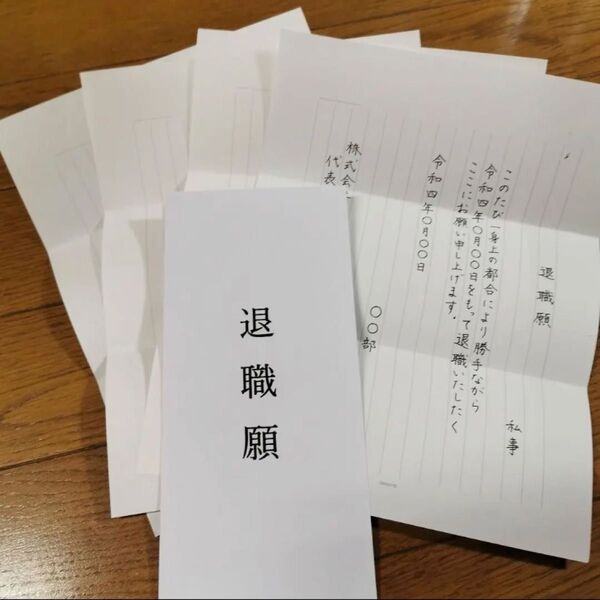 退職願
退職願
私事
このたび一身上の都合により勝手ながら
令和四年〇月〇〇日をもって退職いたしたく
ここにお願い申し上げます。
令和四年〇月〇〇日
〇〇部
株式会
代表